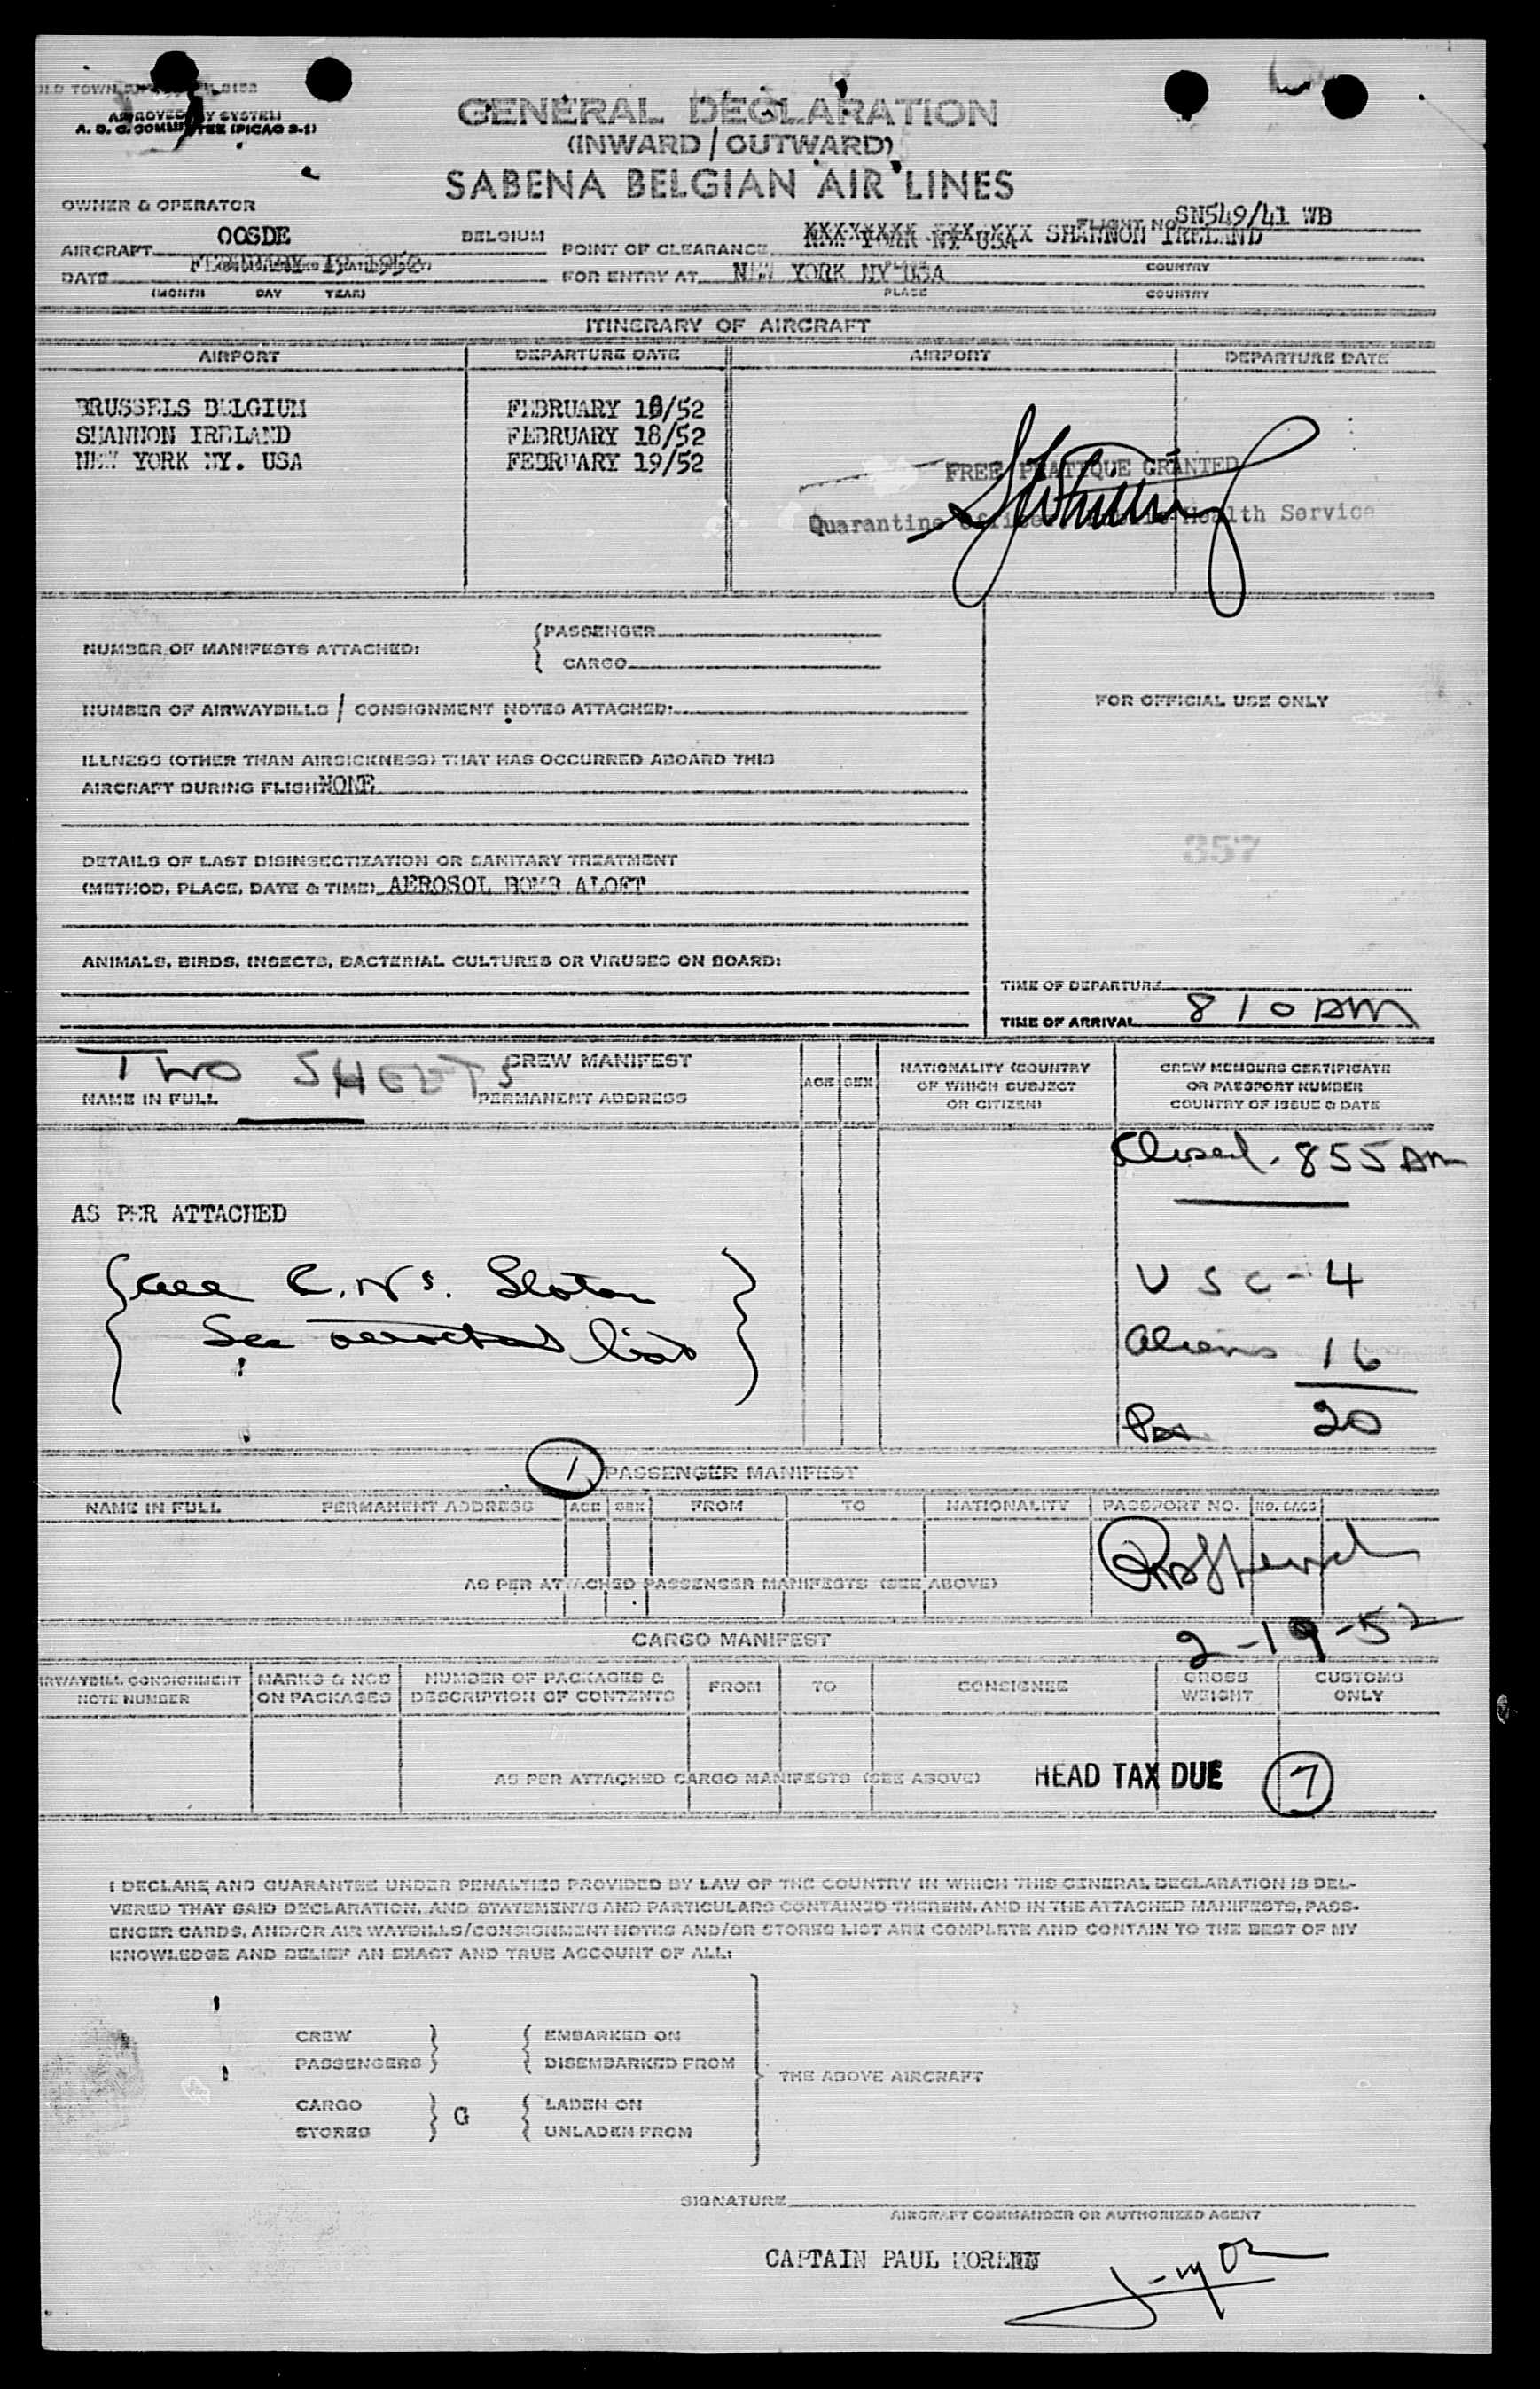 OLD TOWN 8152
APPROVED BY SYSTEM
A. D. C. COMMITTEE (PICAO 3-1)
GENERAL DECLARATION
(INWARD / OUTWARD)
SABENA BELGIAN AIR LINES
OWNER & OPERATOR
FLIGHT NO. SN549/41 WB
AIRCRAFT OOSDE BELGIUM
POINT OF CLEARANCE NEW YORK NY USA SHANNON IRELAND
PLACE COUNTRY
DATE FEBRUARY 19 1952
FOR ENTRY AT NEW YORK NY USA
(MONTH DAY YEAR)
PLACE COUNTRY
ITINERARY OF AIRCRAFT
AIRPORT DEPARTURE DATE AIRPORT DEPARTURE DATE
BRUSSELS BELGIUM FEBRUARY 18/52
SHANNON IRELAND FEBRUARY 18/52
NEW YORK NY. USA FEBRUARY 19/52
FREE PRATIQUE GRANTED
Quarantine Officer, Public Health Service
NUMBER OF MANIFESTS ATTACHED:
PASSENGER
CARGO
NUMBER OF AIRWAYBILLS / CONSIGNMENT NOTES ATTACHED:
FOR OFFICIAL USE ONLY
ILLNESS (OTHER THAN AIRSICKNESS) THAT HAS OCCURRED ABOARD THIS
AIRCRAFT DURING FLIGHT NONE
357
DETAILS OF LAST DISINSECTIZATION OR SANITARY TREATMENT
(METHOD, PLACE, DATE & TIME) AEROSOL BOMB ALOFT
ANIMALS, BIRDS, INSECTS, BACTERIAL CULTURES OR VIRUSES ON BOARD:
TIME OF DEPARTURE
TIME OF ARRIVAL 810 AM
TWO SHEETS
CREW MANIFEST
NAME IN FULL PERMANENT ADDRESS AGE SEX
NATIONALITY (COUNTRY
OF WHICH SUBJECT
OR CITIZEN)
CREW MEMBERS CERTIFICATE
OR PASSPORT NUMBER
COUNTRY OF ISSUE & DATE
Closed. 855 AM
AS PER ATTACHED
See list
USC - 4
Aliens 16
Pax 20
1 PASSENGER MANIFEST
NAME IN FULL PERMANENT ADDRESS AGE SEX FROM TO NATIONALITY PASSPORT NO. NO. BAGS
AS PER ATTACHED PASSENGER MANIFESTS (SEE ABOVE)
2-19-52
CARGO MANIFEST
AIRWAYBILL CONSIGNMENT
NOTE NUMBER
MARKS & NOS
ON PACKAGES
NUMBER OF PACKAGES &
DESCRIPTION OF CONTENTS
FROM TO CONSIGNEE
GROSS
WEIGHT
CUSTOMS
ONLY
AS PER ATTACHED CARGO MANIFESTS (SEE ABOVE)
HEAD TAX DUE 7
I DECLARE AND GUARANTEE UNDER PENALTIES PROVIDED BY LAW OF THE COUNTRY IN WHICH THIS GENERAL DECLARATION IS DEL-
VERED THAT SAID DECLARATION, AND STATEMENTS AND PARTICULARS CONTAINED THEREIN, AND IN THE ATTACHED MANIFESTS, PASS-
ENGER CARDS, AND/OR AIR WAYBILLS/CONSIGNMENT NOTES AND/OR STORES LIST ARE COMPLETE AND CONTAIN TO THE BEST OF MY
KNOWLEDGE AND BELIEF AN EXACT AND TRUE ACCOUNT OF ALL:
CREW
PASSENGERS
EMBARKED ON
DISEMBARKED FROM
THE ABOVE AIRCRAFT
CARGO
STORES
G
LADEN ON
UNLADEN FROM
SIGNATURE
AIRCRAFT COMMANDER OR AUTHORIZED AGENT
CAPTAIN PAUL